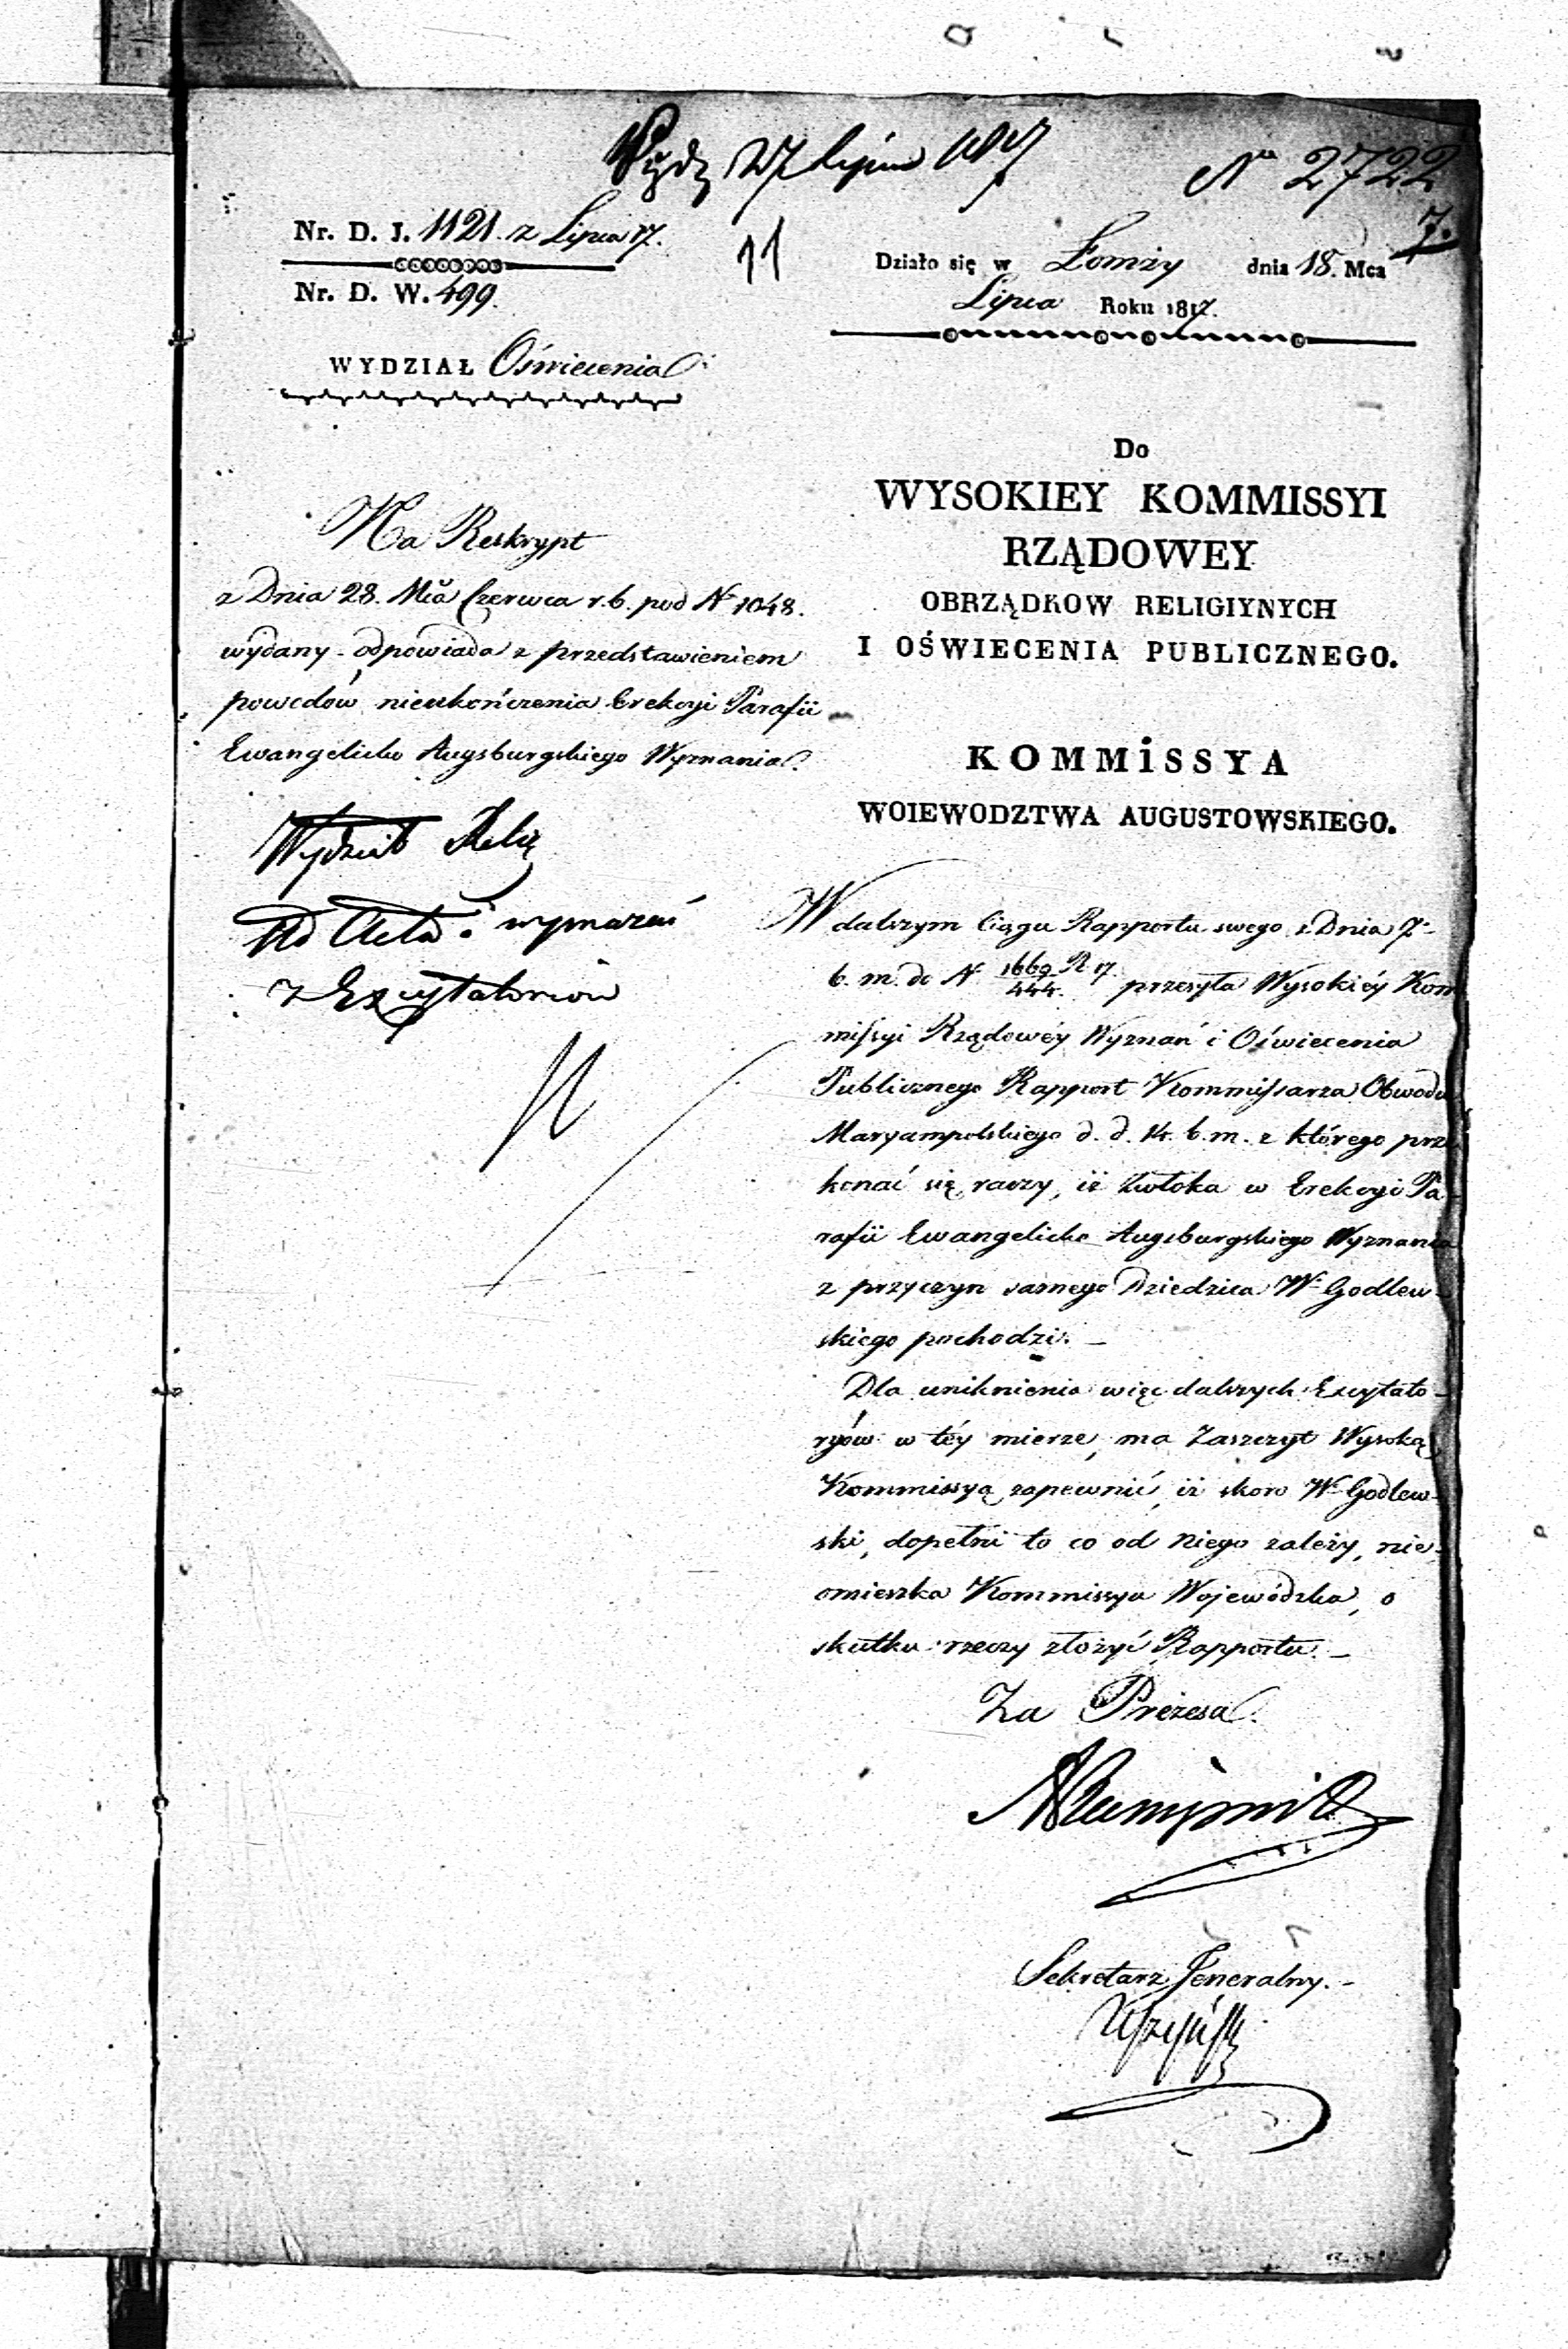 27 Lipca 1817
Nº 2722
7.
11
Nr. D. J. 1121. z Lipca 17.
Nr. D. W. 499.
WYDZIAŁ Oświecenia
Działo się w Łomży dnia 18. Mca
Lipca Roku 1817.
Na Reskrypt
z Dnia 28. Mca Czerwca r. b. pod Nr 1048.
wydany - odpowiada z przedstawieniem
powodów nieukończenia Erekcyi Parafii
Ewangelicko Augsburgskiego Wyznania.
Wydział
Ad Acta i wymazać
z Excytatoriów
Do
WYSOKIEY KOMMISSYI
RZĄDOWEY
OBRZĄDKOW RELIGIYNYCH
I OŚWIECENIA PUBLICZNEGO.
KOMMiSSYA
WOIEWODZTWA AUGUSTOWSKIEGO.
W dalszym Ciągu Rapportu swego z Dnia 7.
b. m. do N 1669/444. R 17. przesyła Wysokiéy Kom
missyi Rządowéy Wyznań i Oświecenia
Publicznego Rapport Kommissarza Obwodu
Maryampolskiego d. d. 14. b. m. z którego prze
konać się raczy, iż Zwłoka w Erekcyi Pa-
rafii Ewangelicko Augsburgskiego Wyznania
z przyczyn samego Dziedzica W. Godlew-
skiego pochodzi. -
Dla uniknienia więc dalszych Excytato-
ryów w téy mierze, ma Zaszczyt Wysoką
Kommissyą zapewnić, iż skoro W. Godlew-
ski, dopełni to co od Niego zależy, nie-
omieszka Kommissya Wojewódzka, o
skutku rzeczy złożyć Rapportu. -
Za Prezesa.
Sekretarz Jeneralny. -